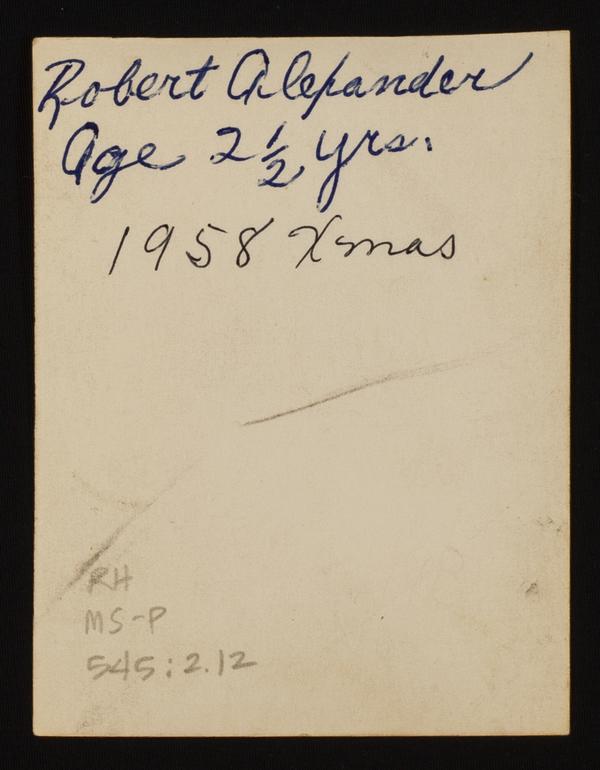 Robert Alexander
Age 2 1/2 yrs.
1958 Xmas
RH
MS-P
545:2.12